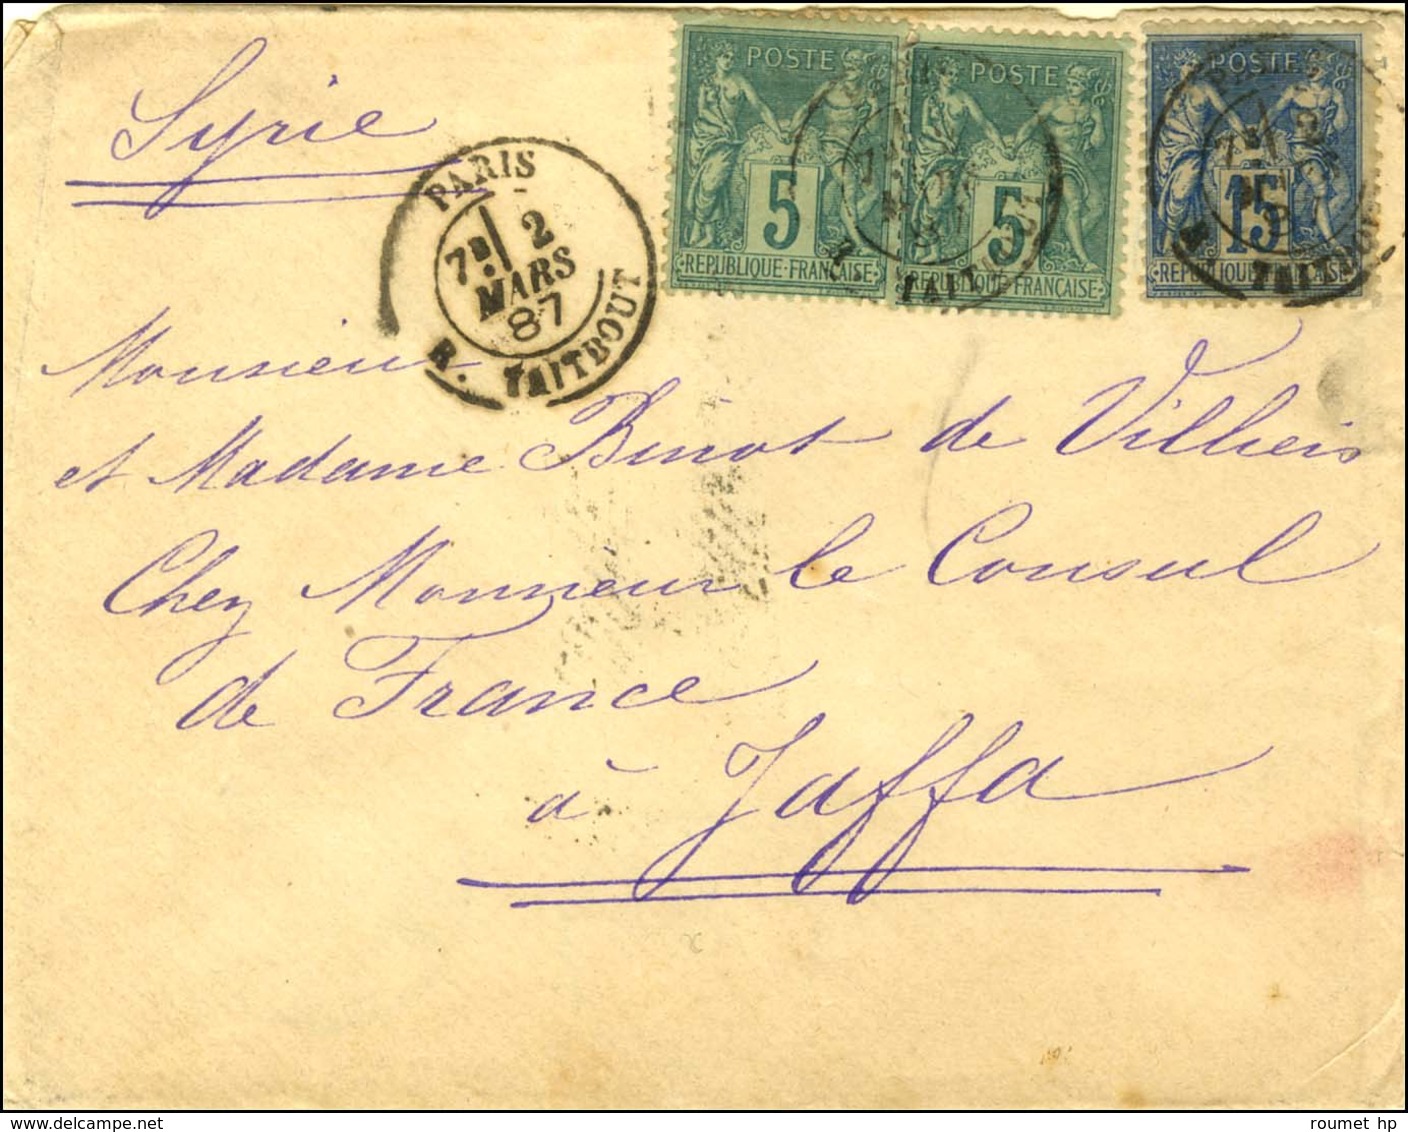 Syrie
POSTE
5
REPUBLIQUE FRANÇAISE
POSTE
5
REPUBLIQUE FRANÇAISE
15
REPUBLIQUE FRANÇAISE
PARIS
7E 2
MARS
87
R. TAITBOUT
Monsieur
et Madame Binot de Villiers
Chez Monsieur le Consul
de France
à Jaffa
roumet hp